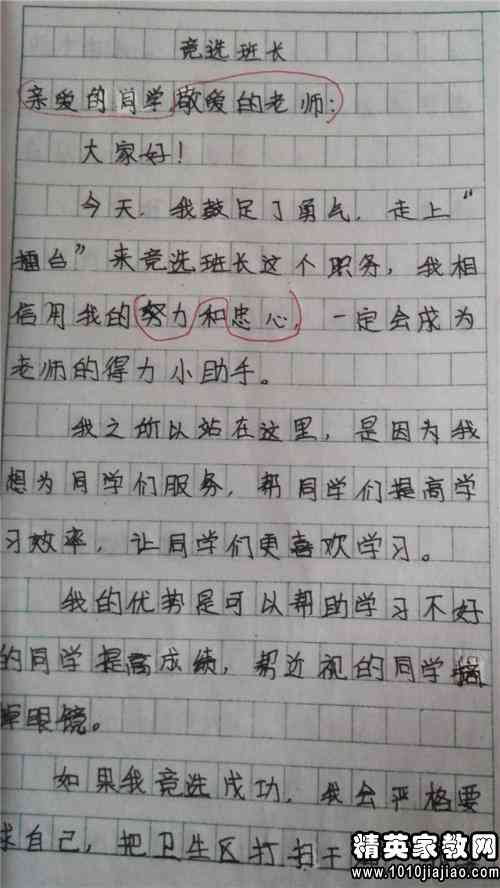 竞选班长
亲爱的同学,敬爱的老师:
大家好!
今天,我鼓足了勇气,走上“
擂台”来竞选班长这个职务,我相
信用我的努力和忠心,一定会成为
老师的得力小助手。
我之所以站在这里,是因为我
想为同学们服务,帮同学们提高学
习效率,让同学们更喜欢学习。
我的优势是可以帮助学习不好
的同学提高成绩,帮近视的同学摘
掉眼镜。
如果我竞选成功,我会严格要
求自己,把卫生区打扫干
精英家教网
www.1010jiajiao.com